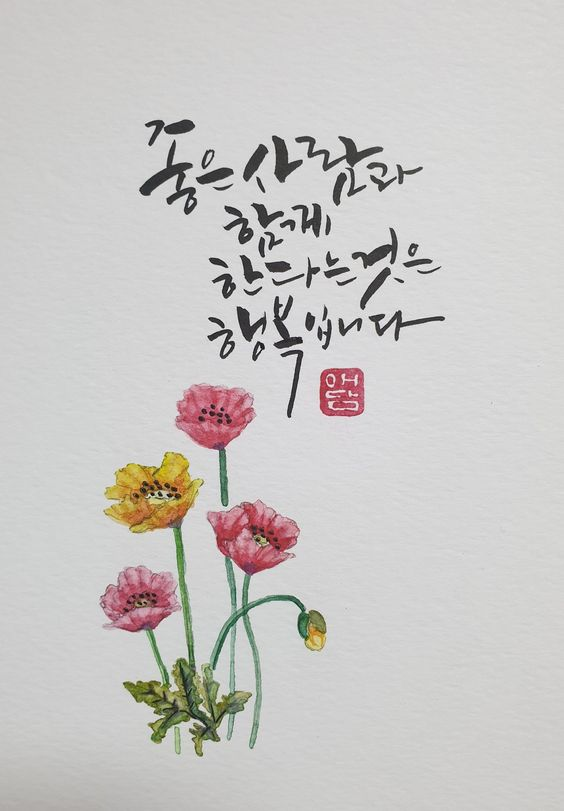 좋은 사람과
함께
한다는것은
행복입니다
애담